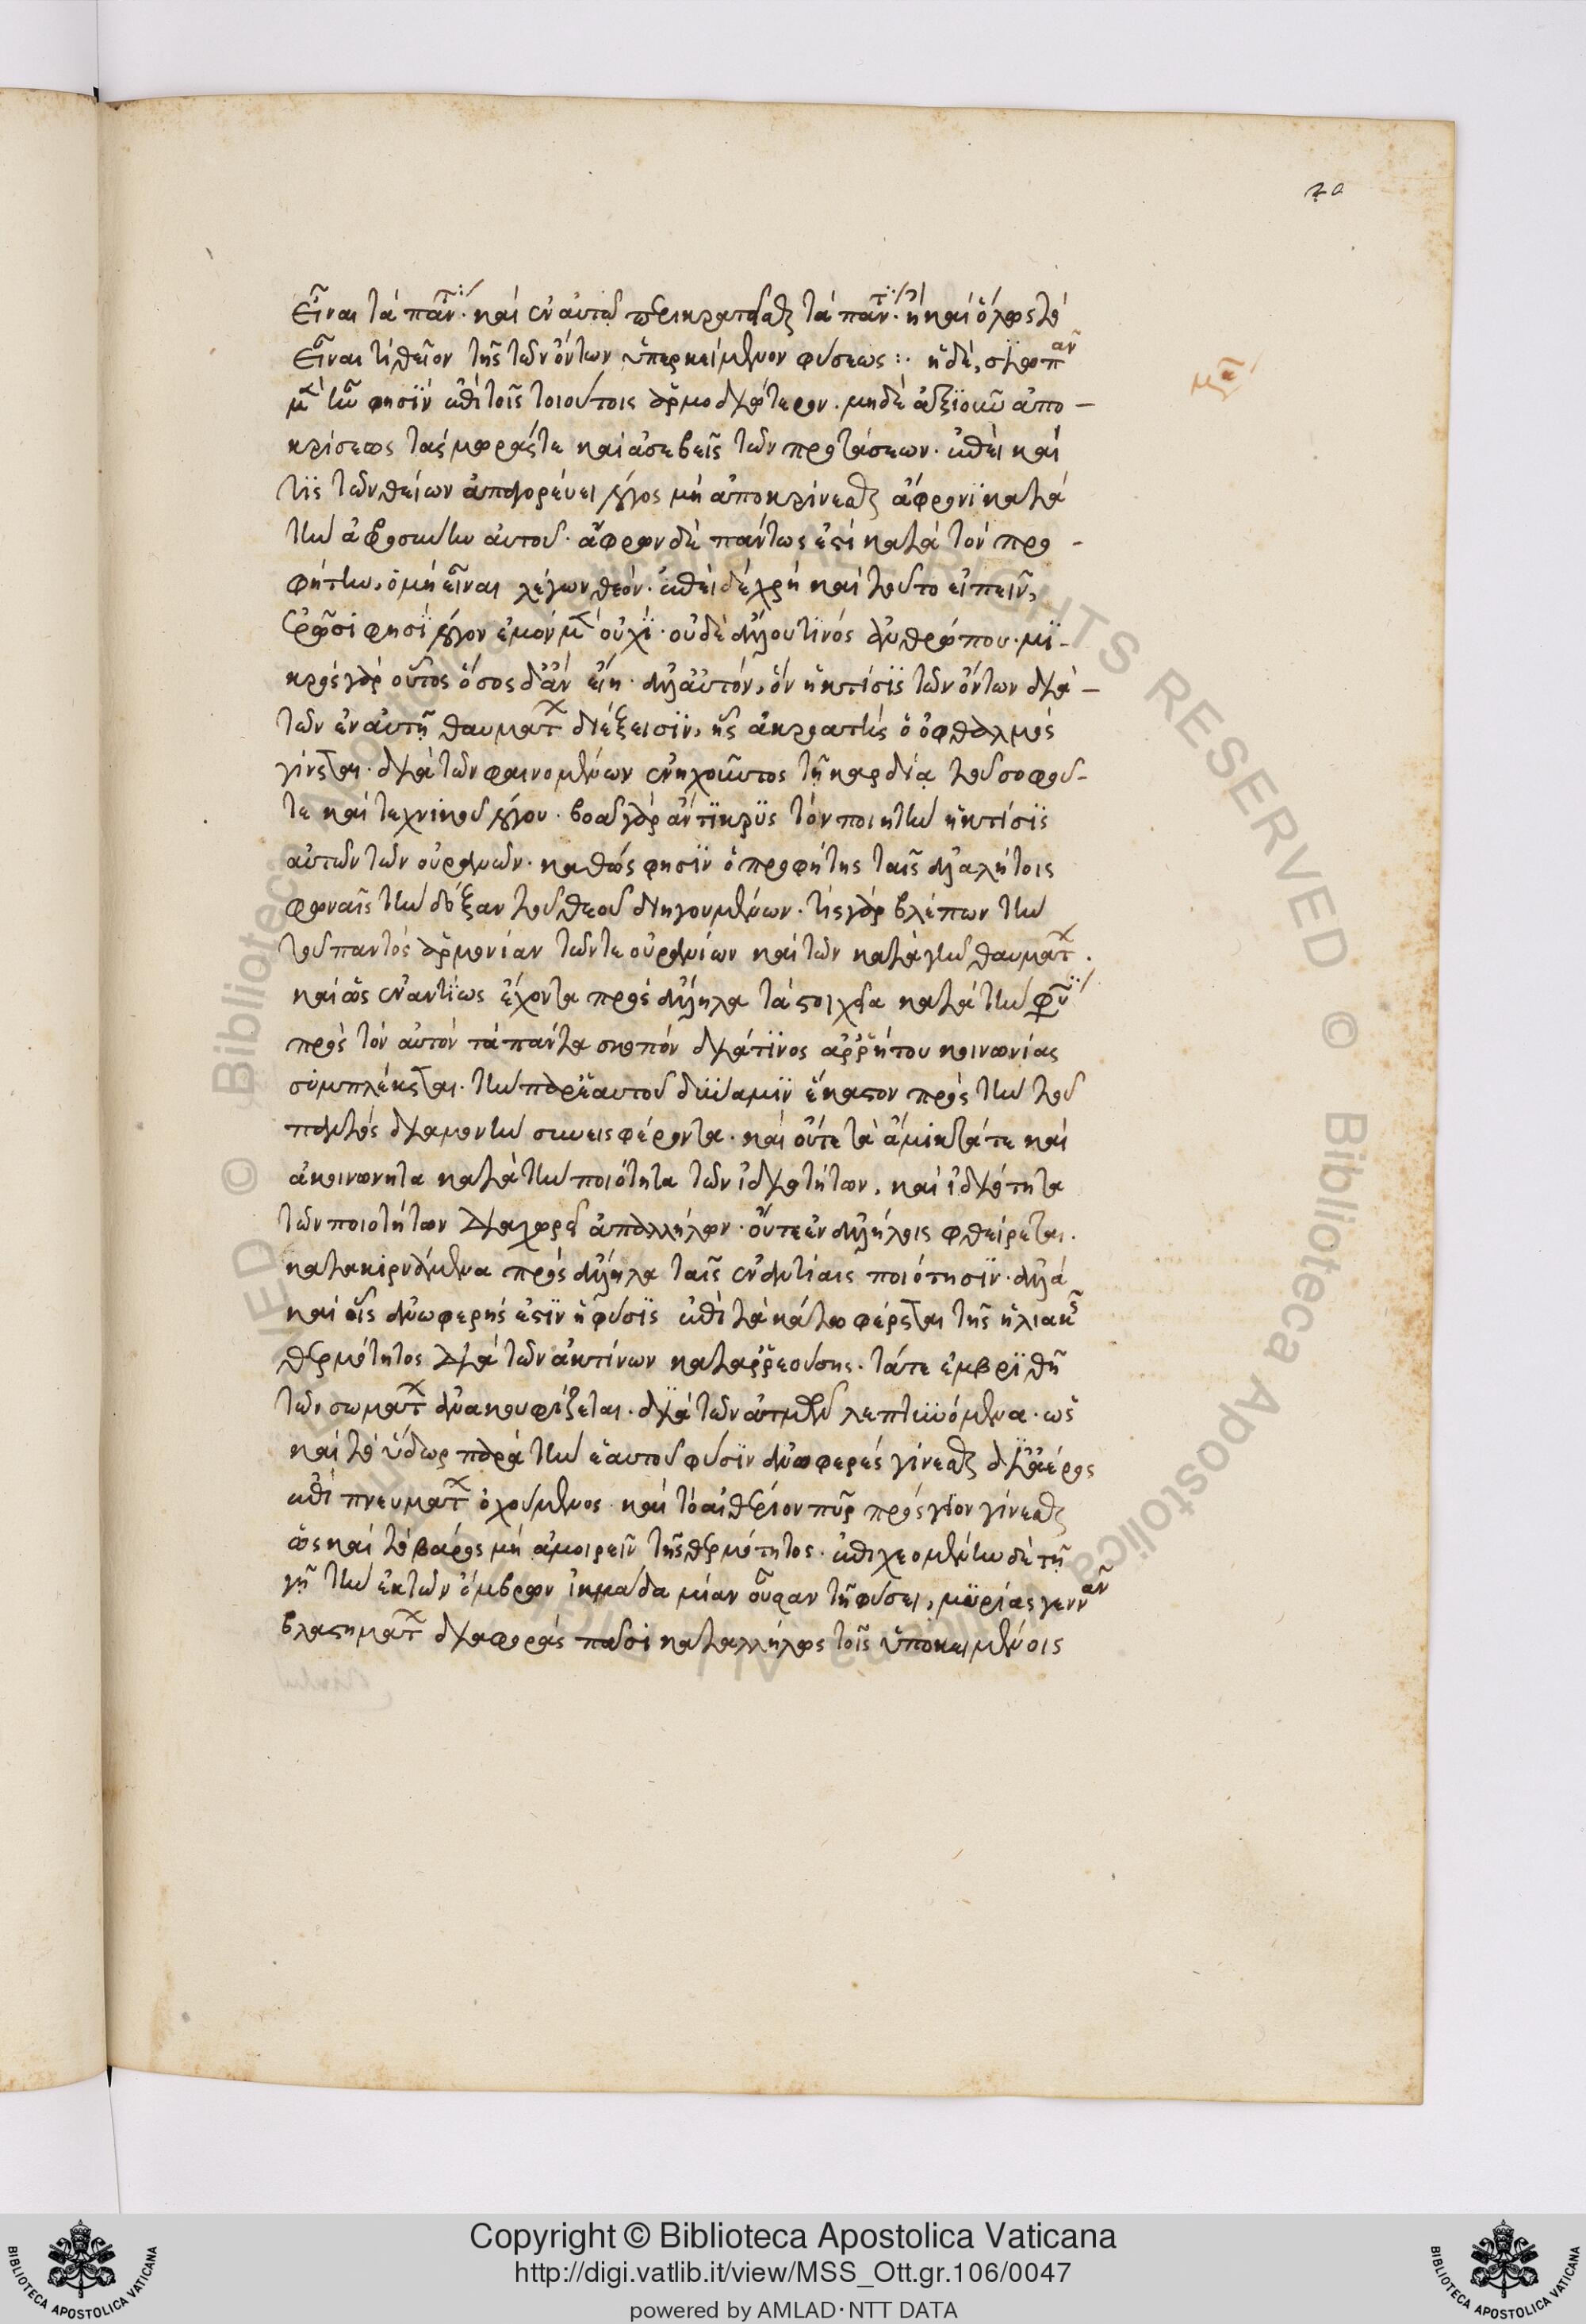 20
Εἶναι τὰ πάντα· καὶ ἐν αὐτῷ περικρατεῖσθαι τὰ πάντα· ἢ καὶ ὅλως τὸ
εἶναί τι θεῖον τῆς τῶν ὄντων ὑπερκείμενον φύσεως :· ἡ δὲ, σιωπᾶν
μὲν ἦν φησὶν ἐπὶ τοῖς τοιούτοις ἁρμοδιώτερον· μηδὲ ἀξιοῦν ἀπο-
κρίσεως τὰς μωράς τε καὶ ἀσεβεῖς τῶν προτάσεων· ἐπεὶ καί
τις τῶν θείων ἀπαγορεύει λόγος μὴ ἀποκρίνεσθαι ἄφρονι κατὰ
τὴν ἀφροσύνην αὐτοῦ· ἄφρων δὲ πάντως ἐστὶ κατὰ τὸν προ-
φήτην, ὁ μὴ εἶναι λέγων θεόν· ἐπεὶ δὲ χρὴ καὶ τοῦτο εἰπεῖν,
ἐρῶ σοί φησι λόγον ἐμὸν μὲν οὐχὶ· οὐδὲ ἄλλου τινὸς ἀνθρώπου· μι-
κρὸς γὰρ οὗτος ὅσος δ' ἂν εἴη· ἀλλ' αὐτὸν, ὃν ἡ κτίσις τῶν ὄντων διὰ-
τῶν ἐν αὐτῇ θαυμάτων διέξεισιν, ἧς ἀκροατὴς ὁ ὀφθαλμὸς
γίνεται· διὰ τῶν φαινομένων ἐνηχοῦντος τῇ καρδίᾳ τοῦ σοφοῦ-
τε καὶ τεχνικοῦ λόγου· βοᾷ γὰρ ἄντικρυς τὸν ποιητὴν ἡ κτίσις
αὐτῶν τῶν οὐρανῶν· καθώς φησιν ὁ προφήτης ταῖς ἀλαλήτοις
φωναῖς τὴν δόξαν τοῦ θεοῦ διηγουμένων· τίς γὰρ βλέπων τὴν
τοῦ παντὸς ἁρμονίαν τῶν τε οὐρανίων καὶ τῶν κατὰ γῆν θαυμάτων·
καὶ ὡς ἐναντίως ἔχοντα πρὸς ἄλληλα τὰ στοιχεῖα κατὰ τὴν φύσιν
πρὸς τὸν αὐτὸν τὰ πάντα σκοπὸν διά τινος ἀρρήτου κοινωνίας
συμπλέκεται· τὴν παρ' ἑαυτοῦ δύναμιν ἕκαστον πρὸς τὴν τοῦ
παντὸς διαμονὴν συνεισφέροντα· καὶ οὔτε τὰ ἄμικτά τε καὶ
ἀκοινώνητα κατὰ τὴν ποιότητα τῶν ἰδιοτήτων, καὶ ἰδιότητα
τῶν ποιοτήτων διαχωρεῖ ἀπαλλήλων· οὔτε ἐν ἀλλήλοις φθείρεται·
κατακιρνάμενα πρὸς ἄλληλα ταῖς ἐναντίαις ποιότησιν· ἀλλὰ
καὶ οἷς ἀνωφερής ἐστιν ἡ φύσις ἐπὶ τὰ κάτω φέρεται τῆς ἡλιακῆς
θερμότητος διὰ τῶν ἀκτίνων καταρρεούσης· τά τε ἐμβριθῆ
τῶν σωμάτων ἀνακουφίζεται· διὰ τῶν ἀτμῶν λεπτυνόμενα· ὡς
καὶ τὸ ὕδωρ παρὰ τὴν ἑαυτοῦ φύσιν ἀνωφερὲς γίνεσθαι δι' ἀέρος
ἐπὶ πνευμάτων ὀχούμενος· καὶ τὸ αἰθέριον πῦρ πρόσγειον γίνεσθαι
ὡς καὶ τὸ βάρος μὴ ἀμοιρεῖν τῆς θερμότητος· ἐπιχεομένην δὲ τῇ
γῇ τὴν ἐκ τῶν ὄμβρων ἰκμάδα μίαν οὖσαν τῇ φύσει, μυρίας γεννᾶν
βλαστημάτων διαφορὰς πᾶσι καταλλήλως τοῖς ὑποκειμένοις
© Biblioteca Apostolica Vaticana ALL RIGHTS RESERVED
Copyright © Biblioteca Apostolica Vaticana
http://digi.vatlib.it/view/MSS_Ott.gr.106/0047
powered by AMLAD·NTT DATA
BIBLIOTECA APOSTOLICA VATICANA
BIBLIOTECA APOSTOLICA VATICANA